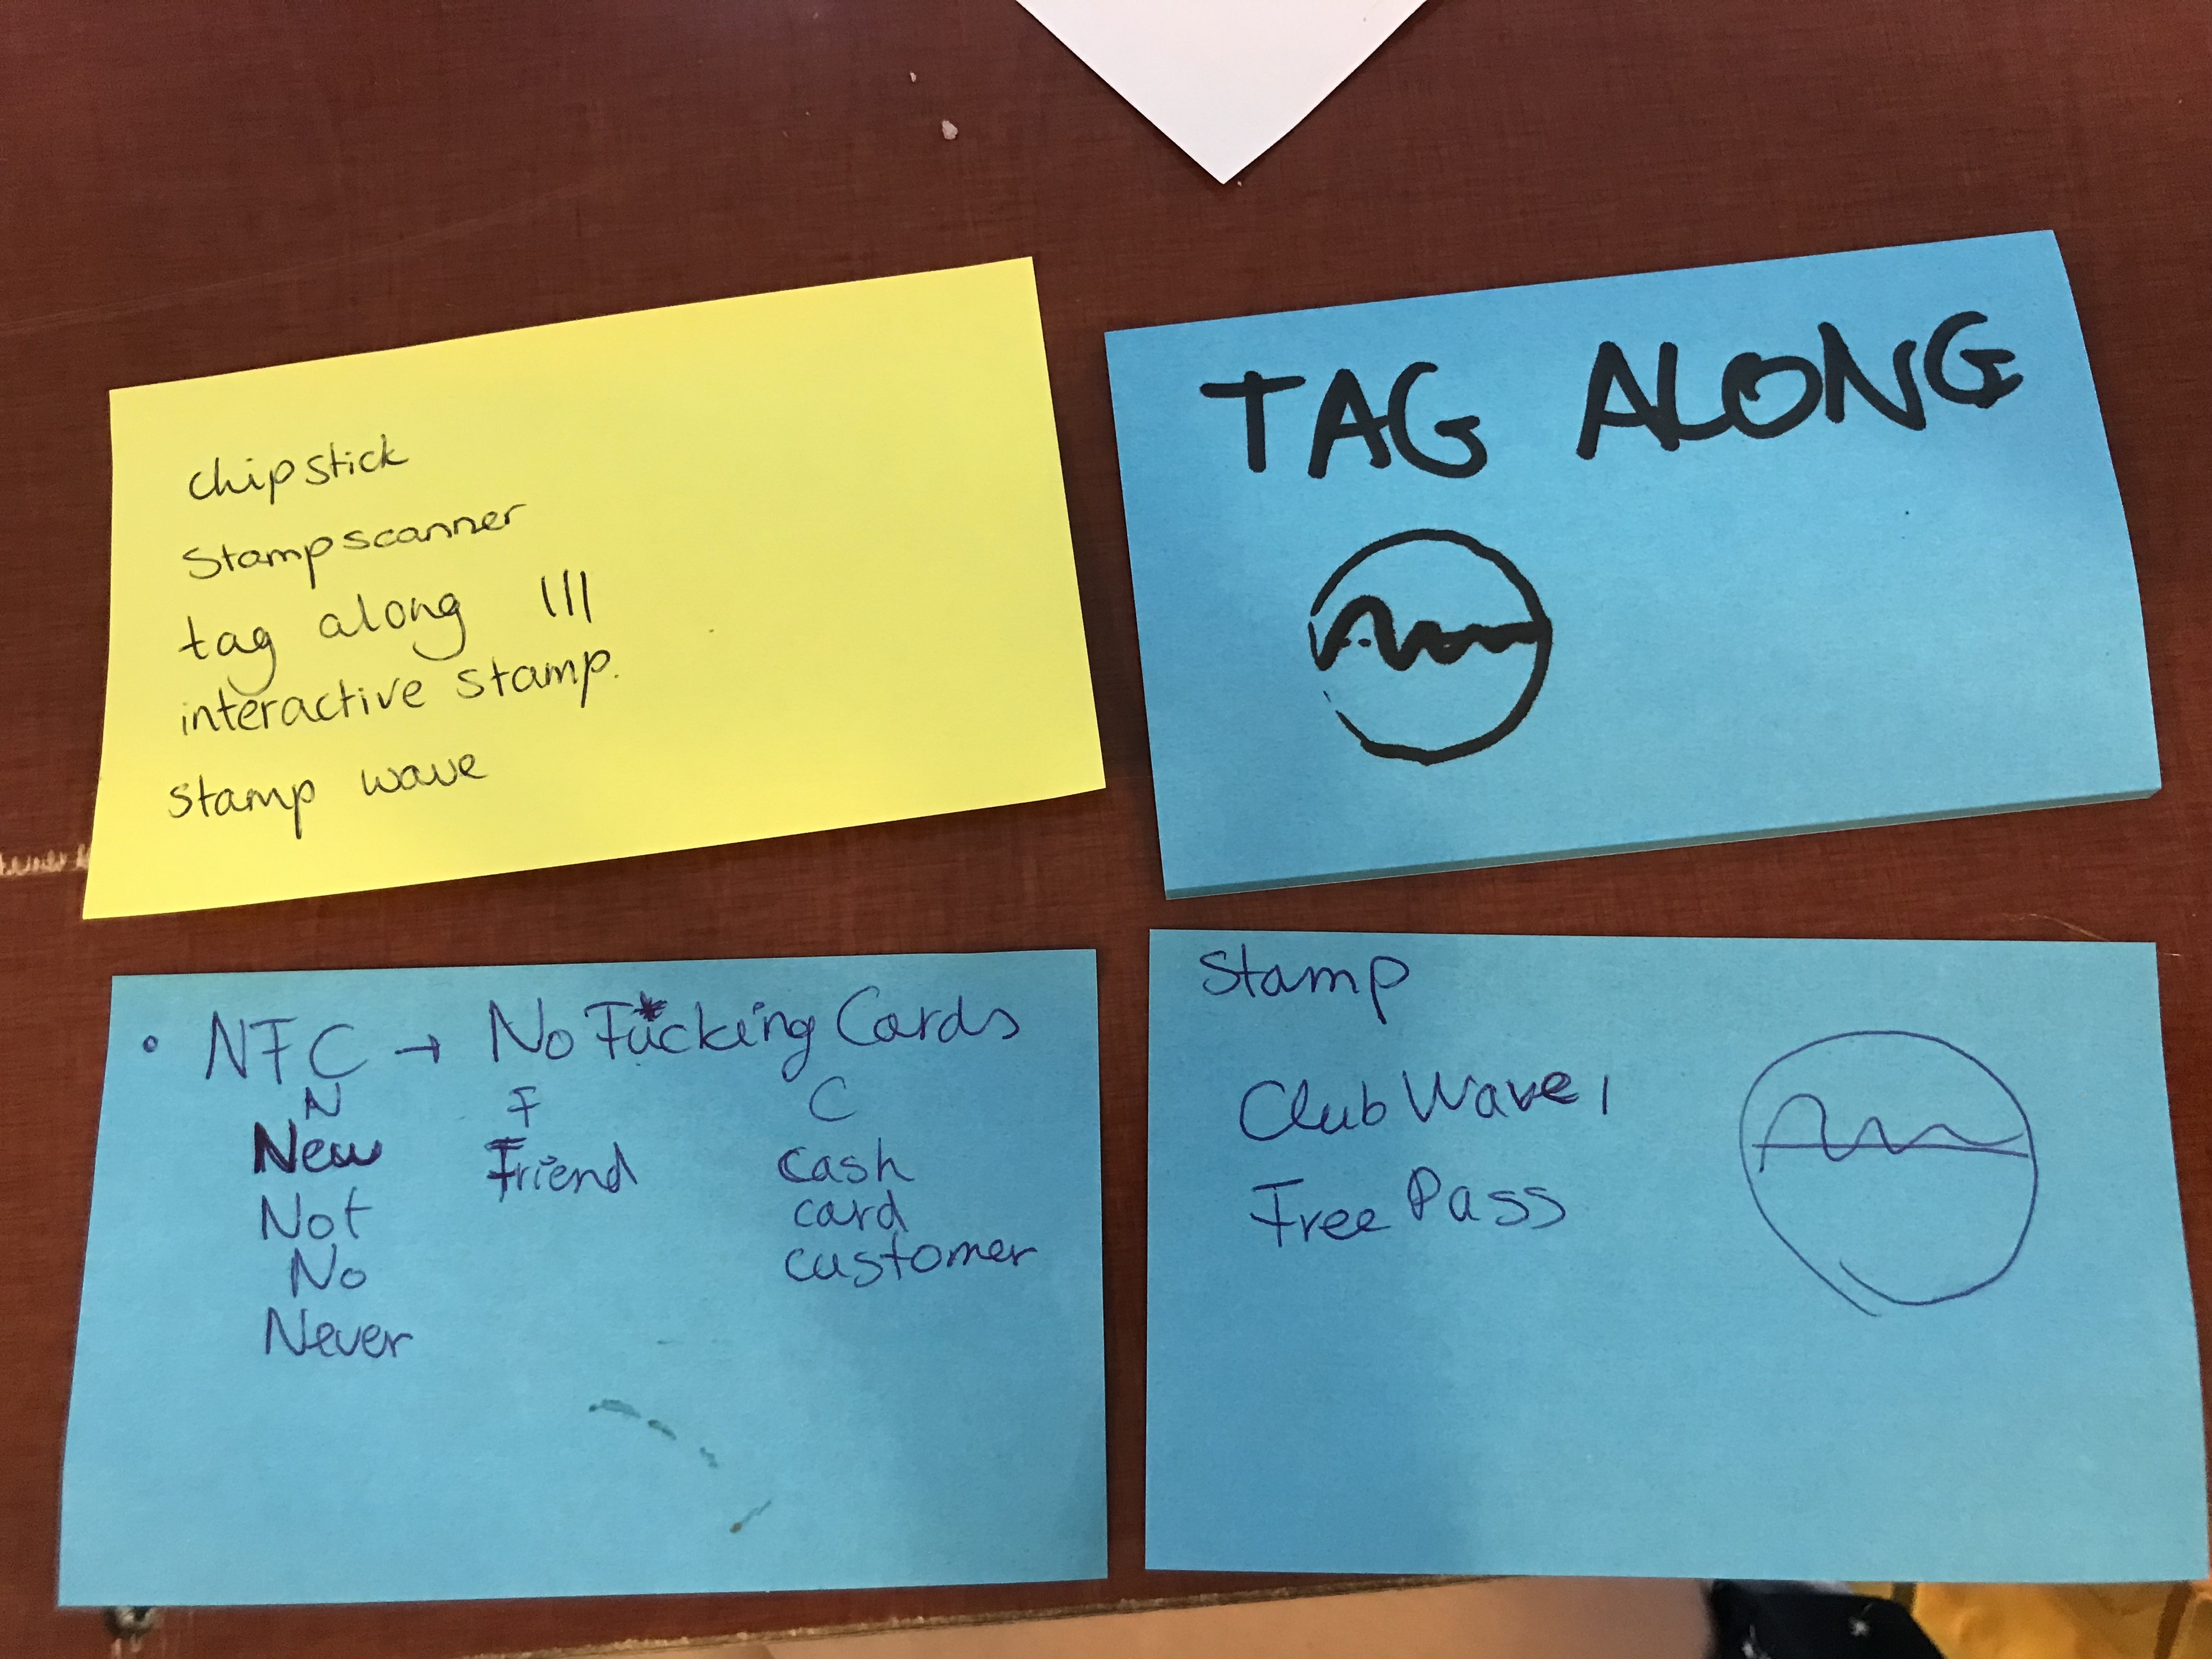 chipstick
Stampscanner
tag along |||
interactive stamp.
stamp wave
TAG ALONG
• NFC → No Fu*cking Cards
N F C
New Friend cash
Not card
No customer
Never
Stamp
Club Wave,
Free Pass